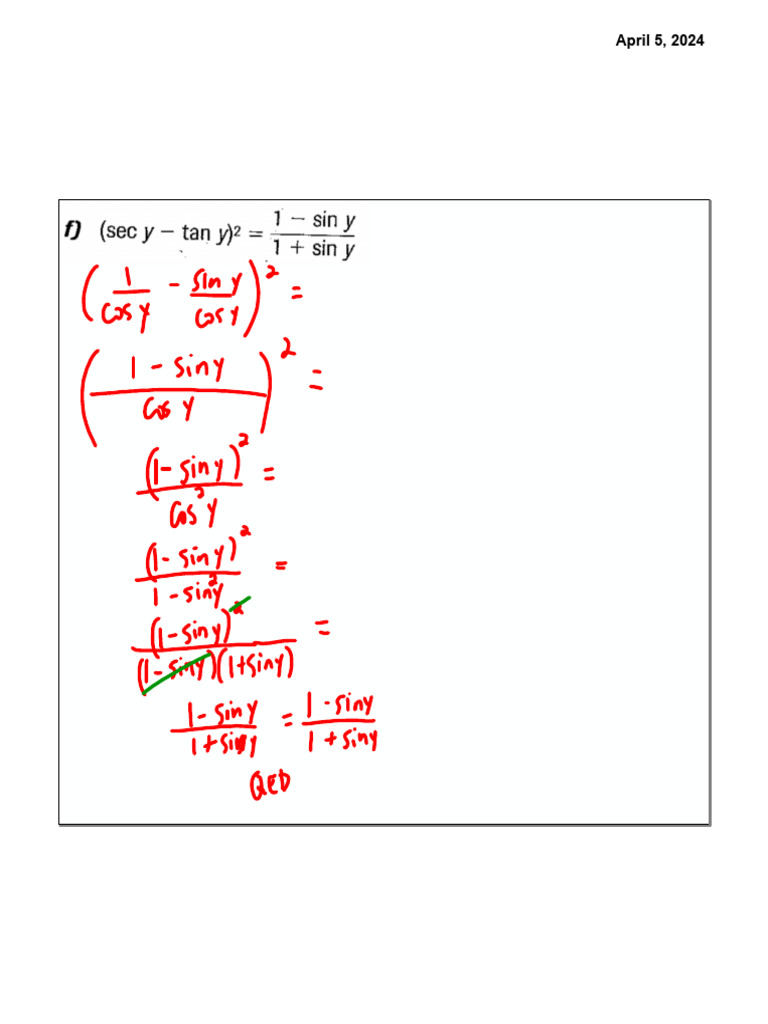 April 5, 2024
f) (sec y − tan y)² = (1 − sin y)/(1 + sin y)
(1/cos y - sin y/cos y)² =
((1 - sin y)/cos y)² =
(1 - sin y)²/cos² y =
(1 - sin y)²/(1 - sin² y) =
(1 - sin y)²/((1 - sin y)(1 + sin y)) =
(1 - sin y)/(1 + sin y) = (1 - sin y)/(1 + sin y)
QED